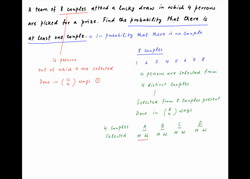 A team of 8 couples attend a lucky draw in which 4 persons
are picked for a prize. Find the probability that there is
at least one couple. = 1 - probability that there is no couple
4 persons
out of which 4 are selected
Done in (16 4) ways ①
8 couples
1 2 3 4 5 6 7 8
4 persons are selected from
4 distinct couples
Selected from 8 couples present
Done in (8 4) ways
4 couples selected
A B C D
M W M W M W M W